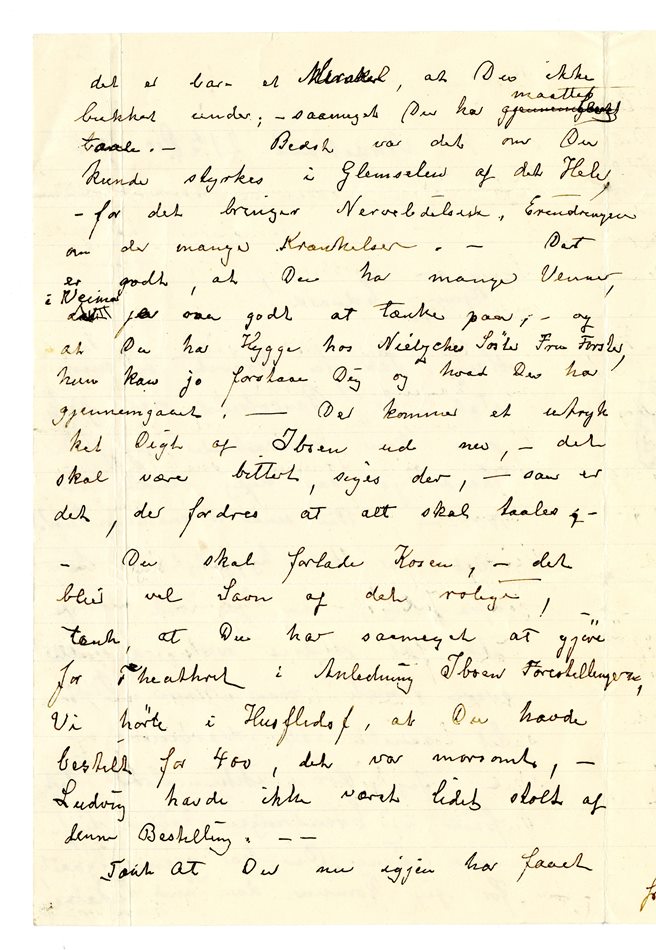 det er bare et Mirakel, at Du ikke
bukket under; – saameget Du har maattet
taale. – Bedst var det om Du
kunde styrkes i Glemselen af det Hele
– for det bringer Nervelidelser, Erindringen
om de mange Krænkelser. – Det
er godt, at Du har mange Venner,
i Weimar
ja var godt at tænke paa; – og
at Du har Hygge hos Nietsches Söster Fru Förster,
hun kan jo forstaae Dig og hvad Du har
gjennemgaaet. – Der kommer et utryk
ket Digt af Ibsen ud nu, – det
skal være bittert, siges der, – saa er
det, der fordres at alt skal taales; –
– Du skal forlade Kosen, – det
blir vel Savn af det rolige, –
tænk, at Du har saameget at gjöre
for Theathret i Anledning Ibsen Forestillingerne,
Vi hörte i Husflidsf, at Du havde
bestilt for 400, det var morsomt, –
Ludvig havde ikke været lidet stolt af
denne Bestilling. – –
Tænk at Du nu igjen har faaet